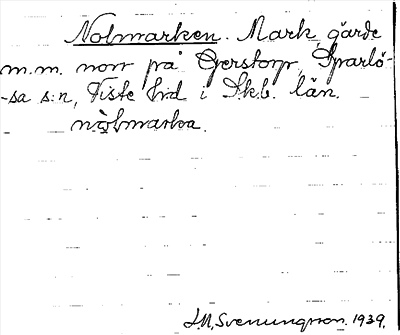 Nolmarken. Mark, gärde
m.m. norr på Gerstorp, Sparlö-
-sa s:n, Viste hd i Skb. län.
nòlmarka.
S.A. Svenungsson. 1939.